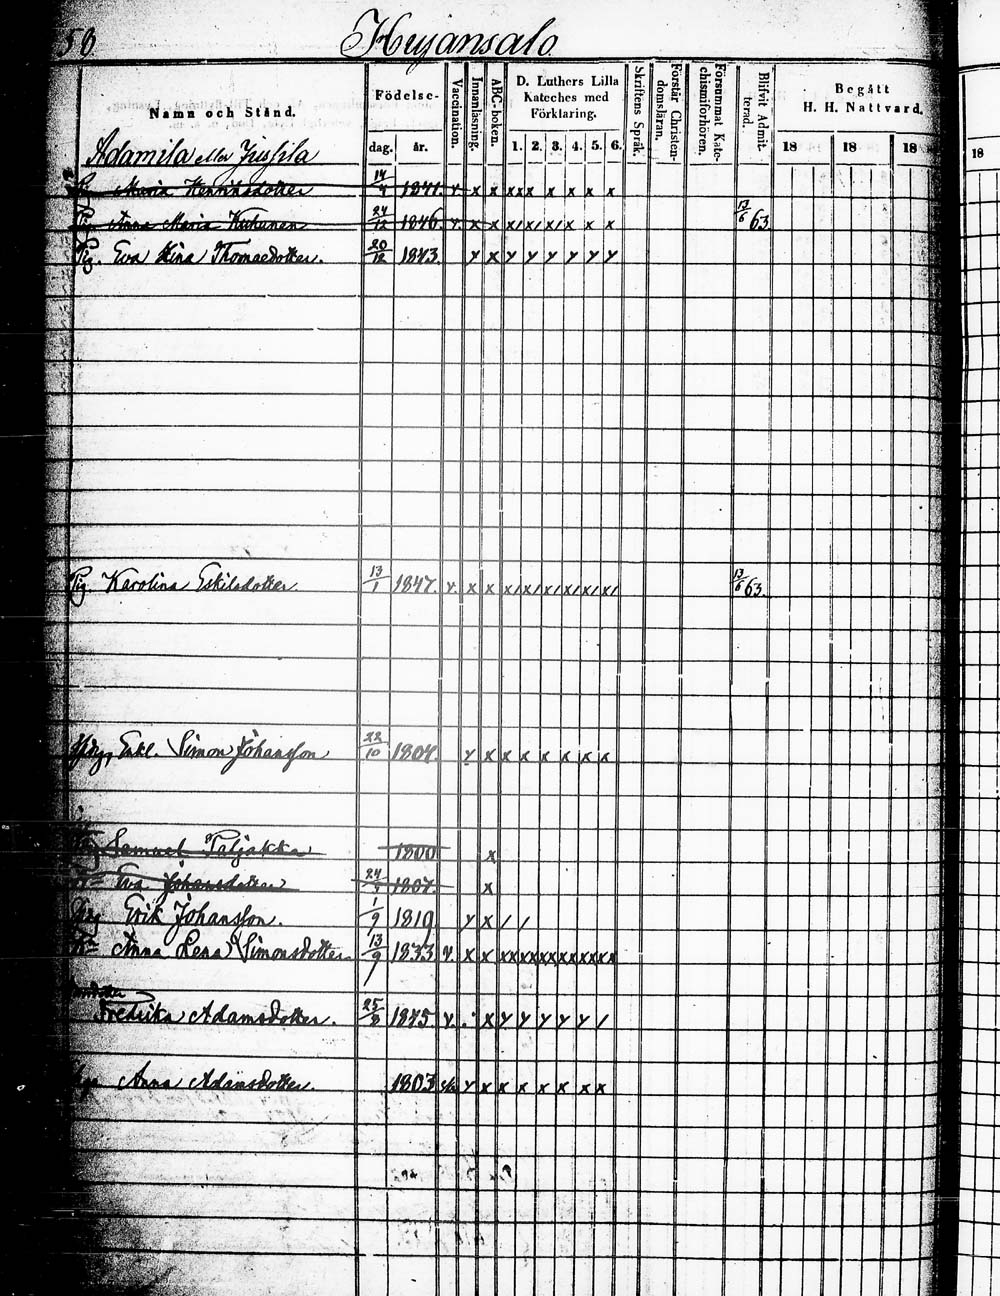 58 Heyansalo
Namn och Stånd. Födelse- dag. år. Vaccination. Innanläsning. ABC-boken. D. Luthers Lilla Kateches med Förklaring. 1. 2. 3. 4. 5. 6. Skriftens Språk. Förstår Christendomsläran. Försummat Katechismiförhören. Blifvit Admitterad. Begått H. H. Nattvard. 18 18 18 18
Adamila eller Jussila
Maria Henriksdotter 14/4 1841. v. x x xxx x x x x
Pig. Anna Maria Kukunen 24/12 1846. v. x x x/ x/ x/ x x x 13/6 63.
Pig. Eva Stina Thomaedotter. 20/12 1843. y x y y y y y y
Pig. Karolina Eskilsdotter. 13/1 1847. v. x x x/ x/ x/ x/ x/ x/ 13/6 63.
Enkl. Simon Johansson 22/10 1804. y x x x x x x x
Samuel Paljakka 1800 x
Eva Johansdotter 24/4 1807. x
Erik Johansson. 1/9 1819 y x / /
Anna Lena Simonsdotter 13/9 1833 v. x x xx xx xx xx xx xx
Fredrika Adamsdotter. 25/8 1845 v. x y y y y y /
Anna Adamsdotter. 1803 y x x x x x x x